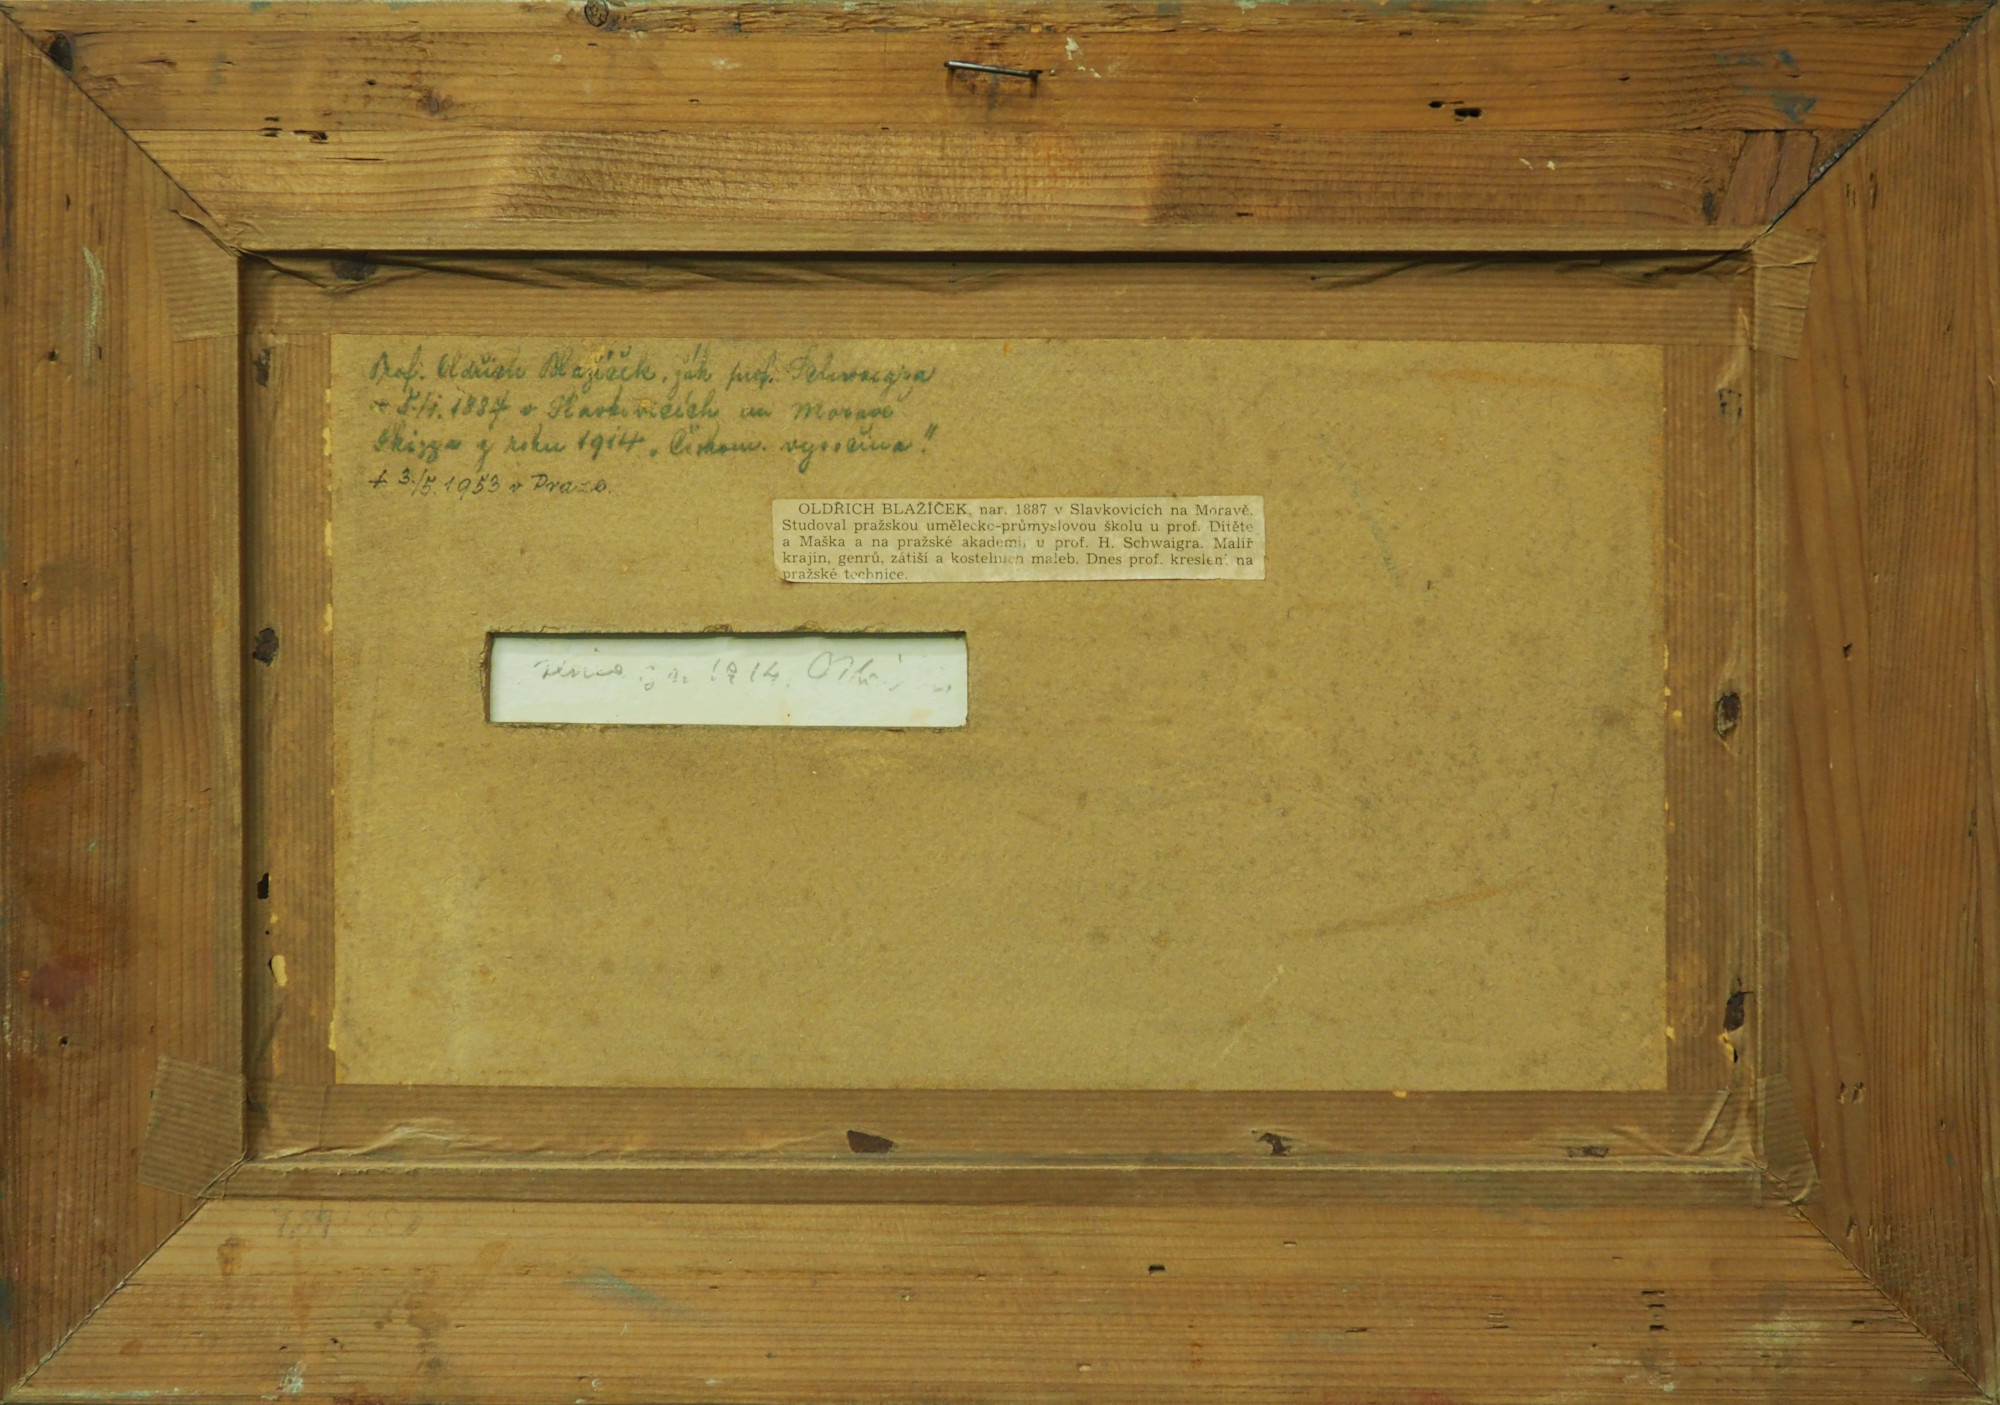 Prof. Oldřich Blažíček, žák prof. Schwaigra
* 5./I. 1887 v Slavkovicích na Moravě
Skizza z roku 1914 „Českom. vysočina"
† 3./5. 1953 v Praze.
OLDŘICH BLAŽÍČEK, nar. 1887 v Slavkovicích na Moravě.
Studoval pražskou umělecko-průmyslovou školu u prof. Dítěte
a Maška a na pražské akademii u prof. H. Schwaigra. Malíř
krajin, genrů, zátiší a kostelních maleb. Dnes prof. kreslení na
pražské technice.
z r. 1914.